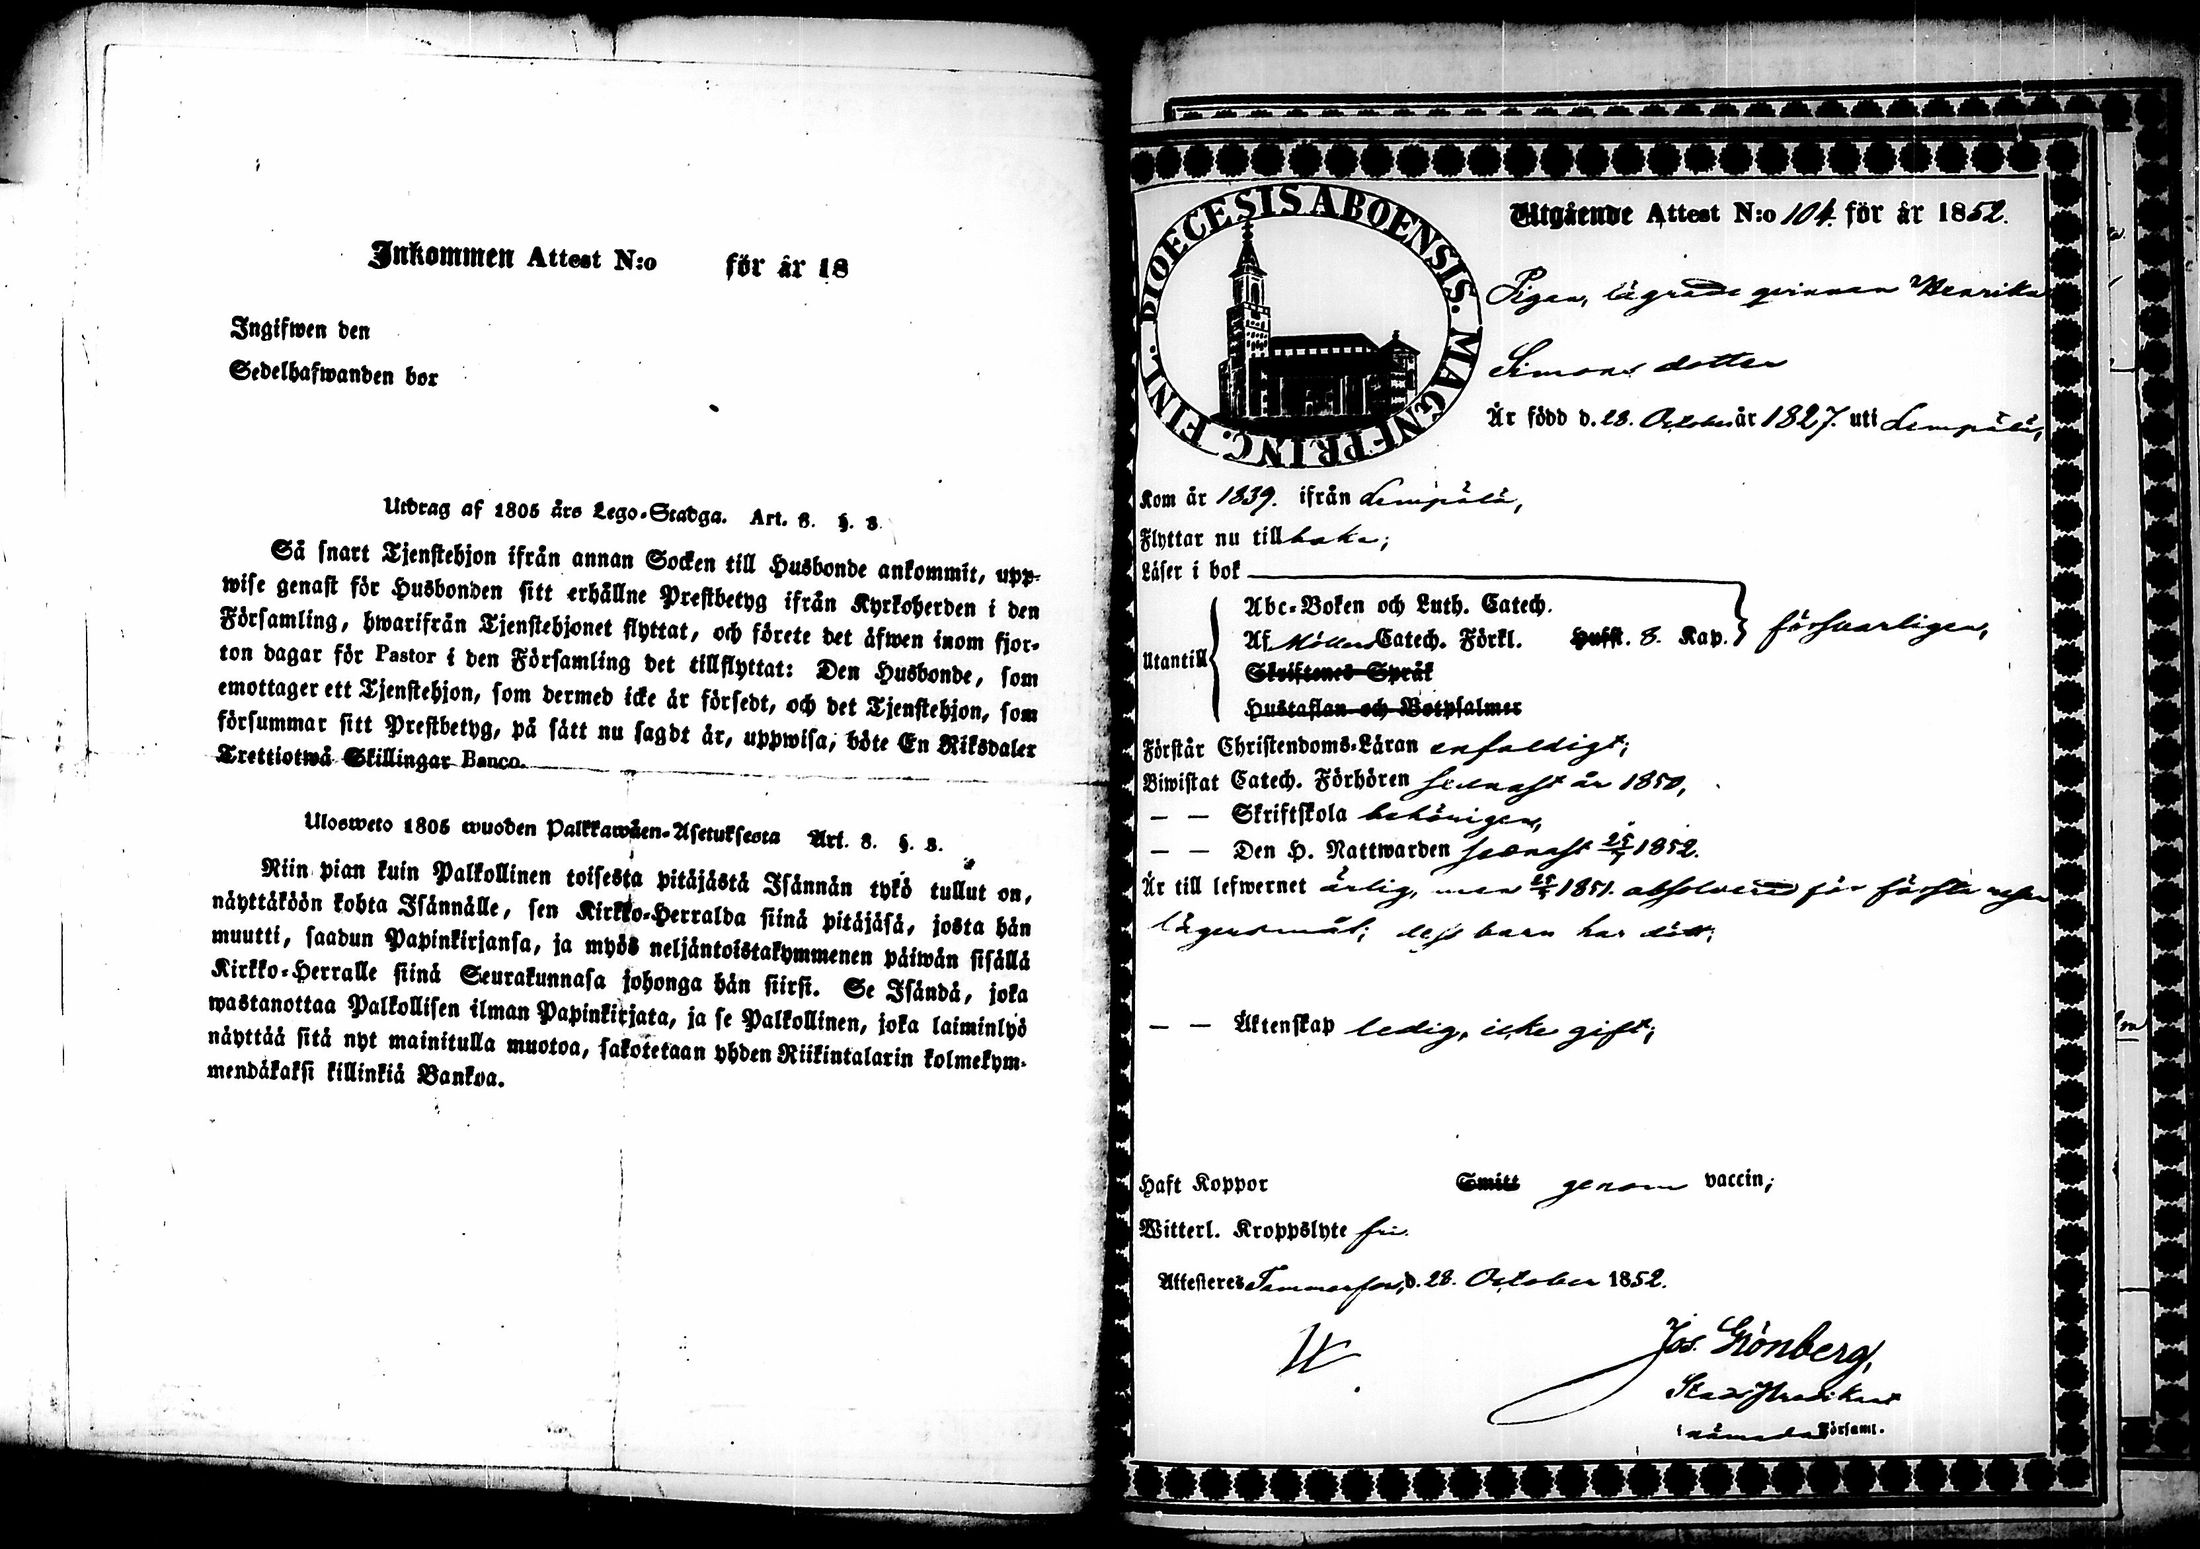 Inkommen Attest N:o för år 18
Ingifwen den
Sedelhafwanden bor
Utdrag af 1805 års Lego-Stadga. Art. 8. §. 3.
Så snart Tjenstehjon ifrån annan Socken till Husbonde ankommit, upp-
wise genast för Husbonden sitt erhållne Prestbetyg ifrån Kyrkoherden i den
Församling, hwarifrån Tjenstehjonet flyttat, och förete det äfwen inom fjor-
ton dagar för Pastor i den Församling det tillflyttat: Den Husbonde, som
emottager ett Tjenstehjon, som dermed icke är försedt, och det Tjenstehjon, som
försummar sitt Prestbetyg, på sätt nu sagdt är, uppwisa, böte En Riksdaler
Trettiotwå Skillingar Banco.
Ulosweto 1805 wuoden Palkkawäen-Asetuksesta Art. 8. §. 3.
Niin pian kuin Palkollinen toisesta pitäjästä Isännän tykö tullut on,
näyttäköön kohta Isännälle, sen Kirkko-Herralda siinä pitäjäsä, josta hän
muutti, saadun Papinkirjansa, ja myös neljäntoistakymmenen päiwän sisällä
Kirkko-Herralle siinä Seurakunnasa johonga hän siirsi. Se Isändä, joka
wastanottaa Palkollisen ilman Papinkirjata, ja se Palkollinen, joka laiminlyö
näyttää sitä nyt mainitulla muotoa, sakotetaan yhden Riikintalarin kolmekym-
mendäkaksi killinkiä Bankoa.
DIOECESIS ABOENSIS. MAGNI PRINC. FINL.
Utgående Attest N:o 104. för år 1852.
Pigan, lägrade qvinnan Henrika
Simons dotter
Är född d. 28. October år 1827. uti Lempälä,
Kom år 1839. ifrån Lempälä,
Flyttar nu tillbaka;
Läser i bok
Abc-Boken och Luth. Catech.
Utantill Af Möllers Catech. Förkl. Hufst. 8. Kap. försvarligen,
Skriftenes Språk
Hustaflan och Botpsalmer
Förstår Christendoms-Läran enfaldigt;
Biwistat Catech. Förhören senast år 1850,
— — Skriftskola behörigen,
— — Den H. Nattwarden senast 25/7 1852.
Är till lefwernet ärlig, men 1851. absolverad för första resan
lägersmål; dess barn har dött;
— — Äktenskap ledig, icke gift;
Haft Koppor Smitt genom vaccin;
Witterl. Kroppslyte fri.
Attesteres Tammerfors, d. 28. October 1852.
Jos. Grönberg,
Stads Predikant
i nämnda Församl.